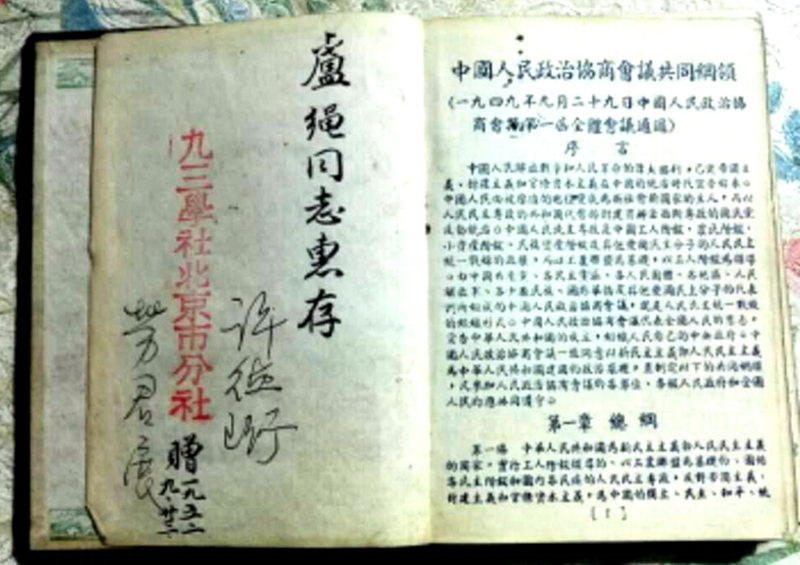 盧绳同志惠存
许德珩
九三學社北京市分社
劳君展
贈一九五二
中國人民政治協商會議共同綱領
(一九四九年九月二十九日中國人民政治協
商會議第一屆全體會議通過)
序言
中國人民解放戰爭和人民革命的偉大勝利,已使帝國主
義、封建主義和官僚資本主義在中國的統治時代宣告結束。
中國人民由被壓迫的地位變成為新社會新國家的主人,而以
人民民主專政的共和國代替那封建買辦法西斯專政的國民黨
反動統治。中國人民民主專政是中國工人階級、農民階級、
小資產階級、民族資產階級及其他愛國民主分子的人民民主
統一戰線的政權,而以工農聯盟為基礎,以工人階級為領導
。由中國共產黨、各民主黨派、各人民團體、各地區、人民
解放軍、各少數民族、國外華僑及其他愛國民主分子的代表
們所組成的中國人民政治協商會議,就是人民民主統一戰線
的組織形式。中國人民政治協商會議代表全國人民的意志,
宣告中華人民共和國的成立,組織人民自己的中央政府。中
國人民政治協商會議一致同意以新民主主義即人民民主主義
為中華人民共和國建國的政治基礎,並制定以下的共同綱領
,凡參加人民政治協商會議的各單位、各級人民政府和全國
人民均應共同遵守。
第一章 總綱
第一條 中華人民共和國為新民主主義即人民民主主義
的國家,實行工人階級領導的、以工農聯盟為基礎的、團結
各民主階級和國內各民族的人民民主專政,反對帝國主義、
封建主義和官僚資本主義,為中國的獨立、民主、和平、統
[1]